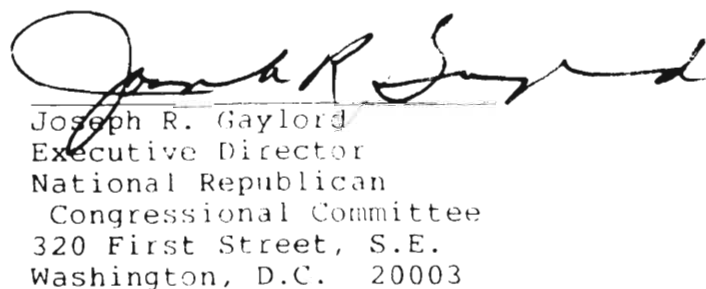 Joseph R Gaylord
Joseph R. Gaylord
Executive Director
National Republican
Congressional Committee
320 First Street, S.E.
Washington, D.C. 20003